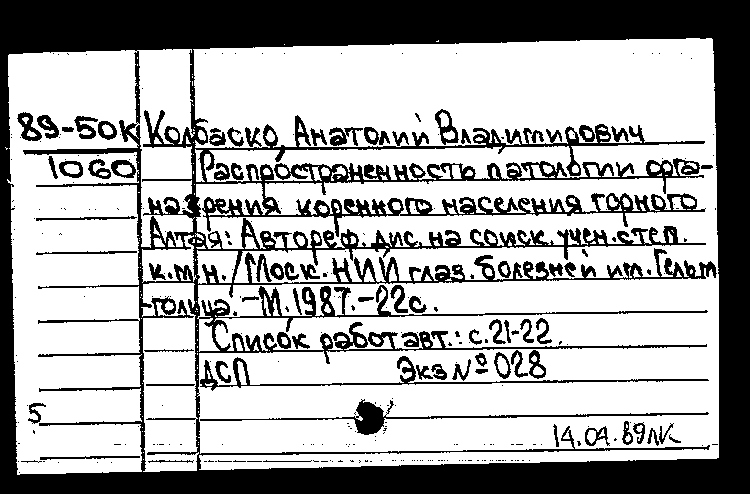 89-50к Колбаско, Анатолий Владимирович
1060 Распространенность патологии орга-
на зрения коренного населения горного
Алтая: Автореф. дис. на соиск. учен. степ.
к.м.н. / Моск. НИИ глаз. болезней им. Гельм
-гольца. -М. 1987. -22с.
Список работ авт.: с. 21-22.
ДСП Экз № 028
5
14.04.89 ЛК